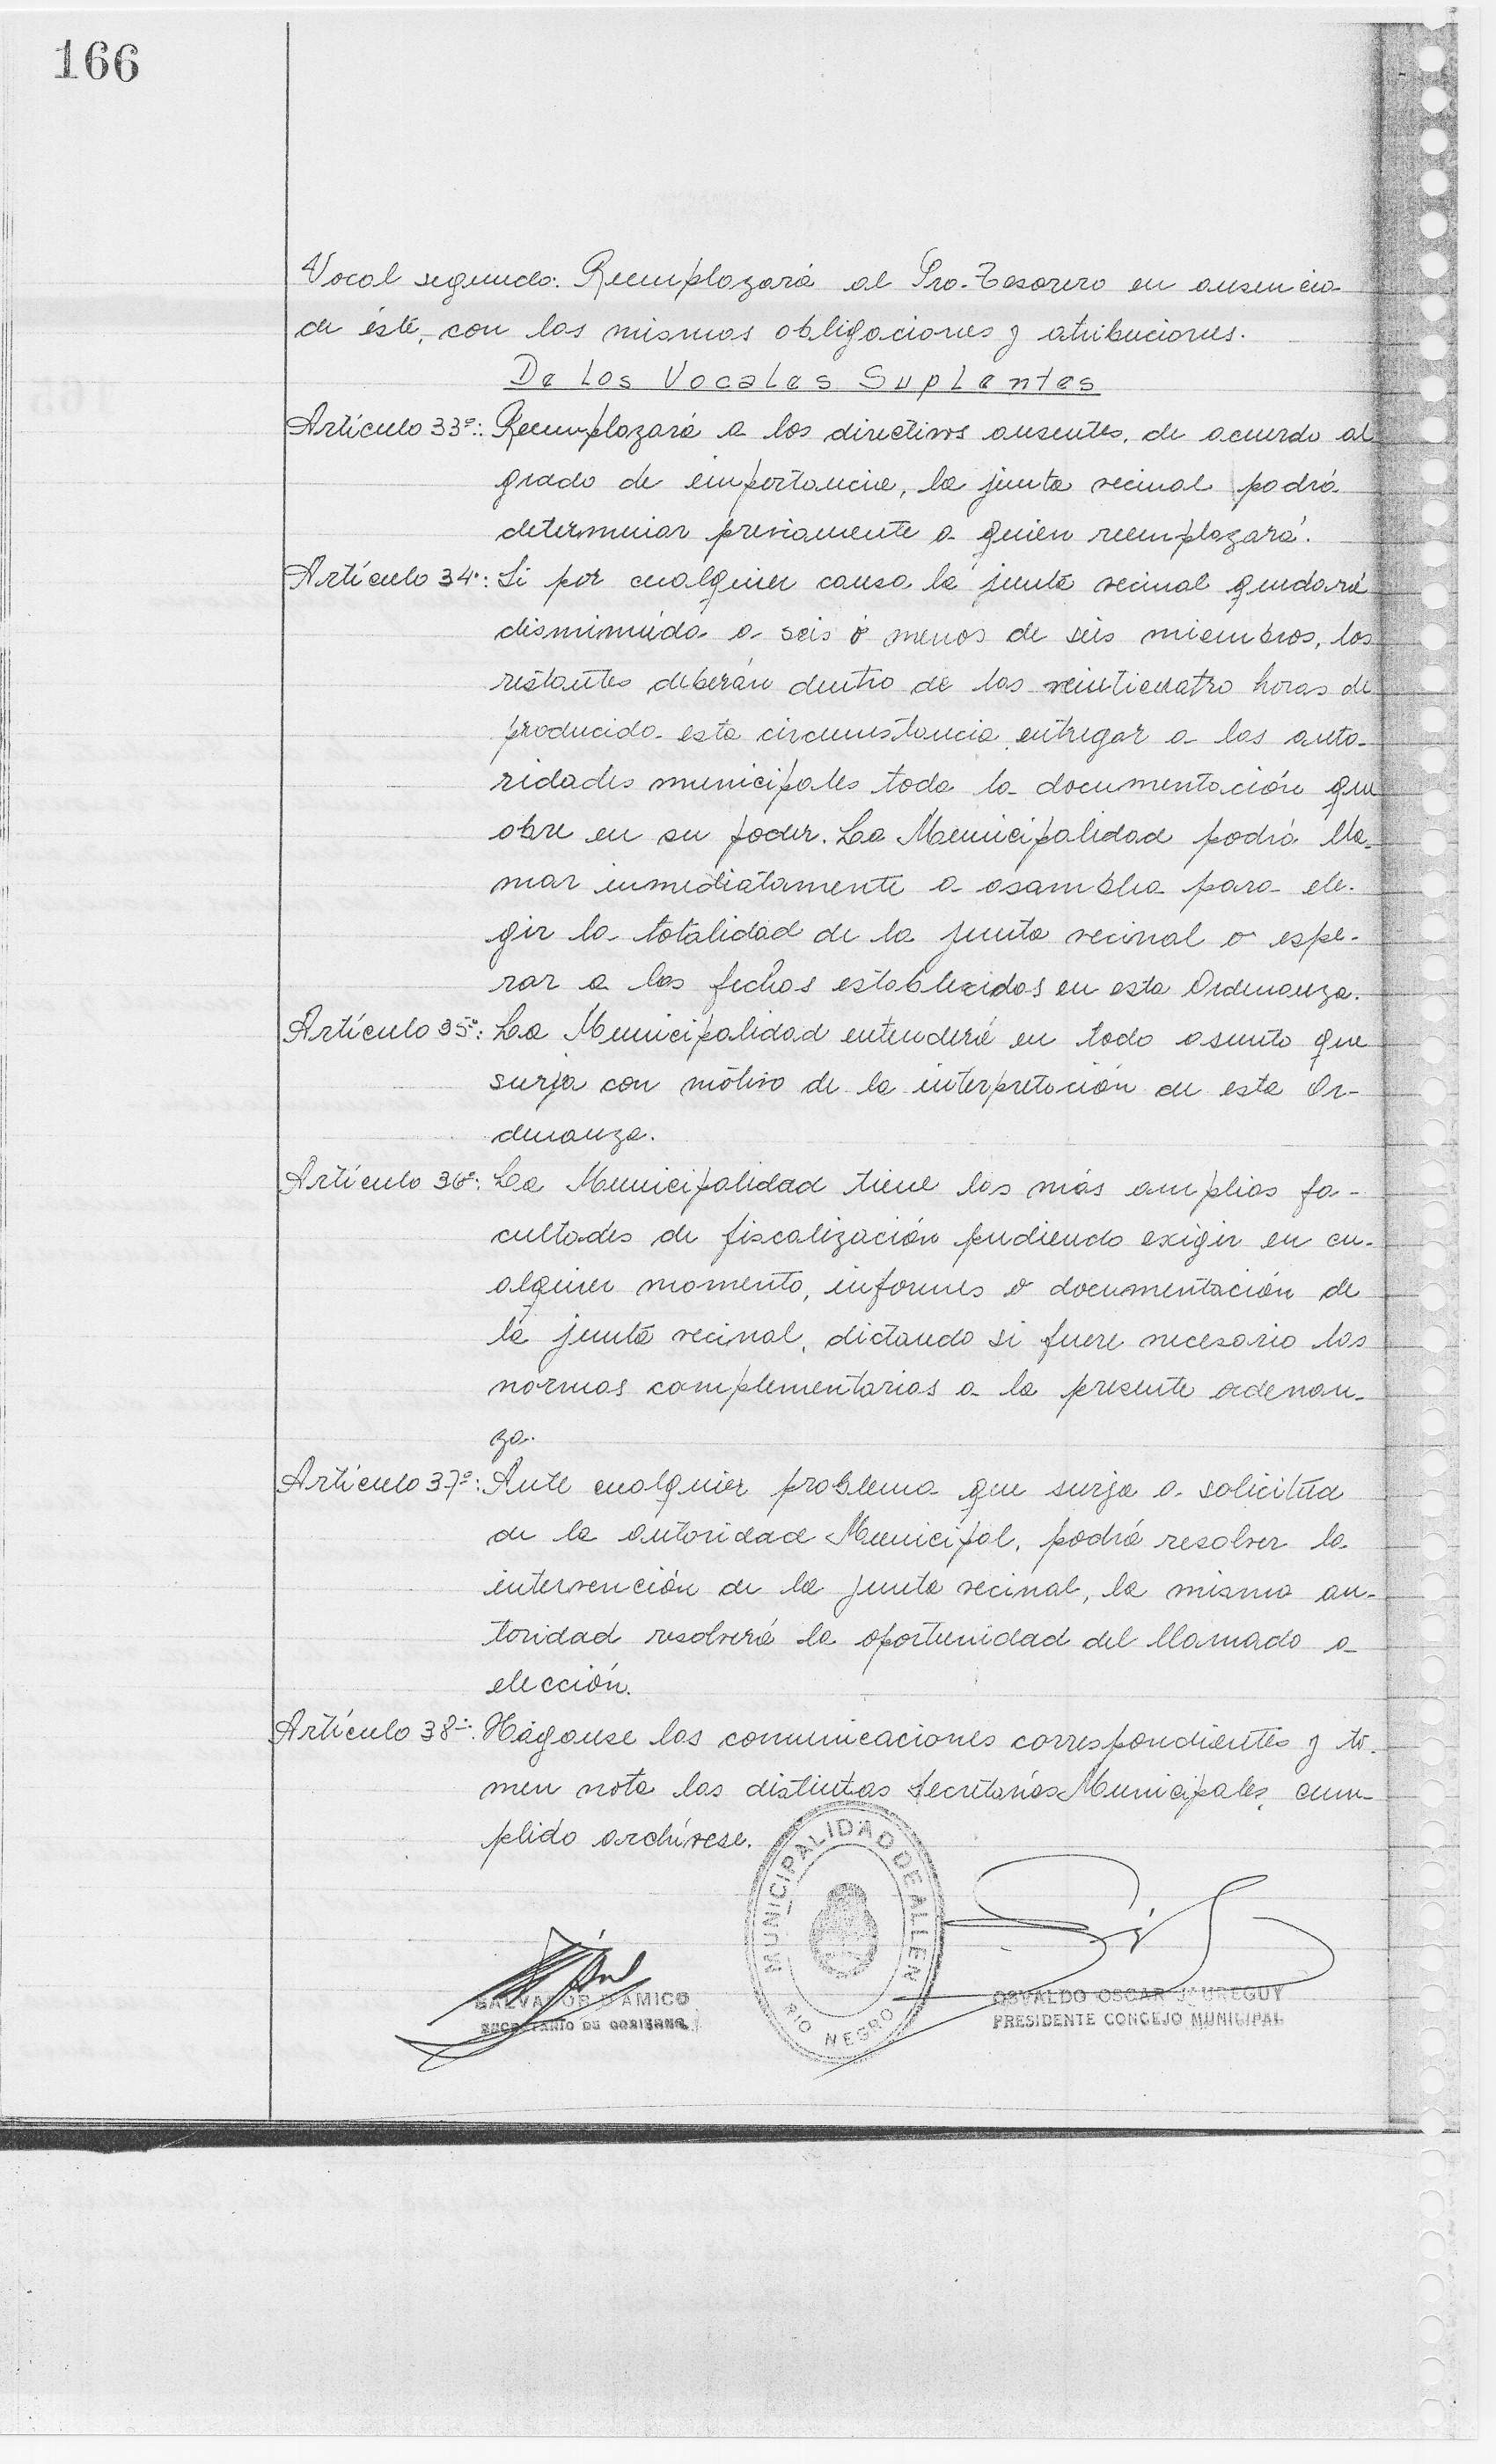 166
Vocal segundo: Reemplazará al Pro-Tesorero en ausencia
de éste, con las mismas obligaciones y atribuciones.
De Los Vocales Suplentes
Artículo 33º: Reemplazará a los directivos ausentes, de acuerdo al
grado de importancia, la junta vecinal podrá
determinar previamente a quien reemplazará.
Artículo 34º: Si por cualquier causa la junta vecinal quedará
disminuída a seis ó menos de seis miembros, los
restantes deberán dentro de las veinticuatro horas de
producida esta circunstancia entregar a las auto-
ridades municipales toda la documentación que
obre en su poder. La Municipalidad podrá lla-
mar inmediatamente a asamblea para ele-
gir la totalidad de la junta vecinal o espe-
rar a las fechas establecidas en esta Ordenanza.
Artículo 35º: La Municipalidad entenderá en todo asunto que
surja con motivo de la interpretación de esta Or-
denanza.
Artículo 36º: La Municipalidad tiene las más amplias fa-
cultades de fiscalización pudiendo exigir en cu-
alquier momento, informes o documentación de
la junta vecinal, dictando si fuere necesario las
normas complementarias a la presente ordenan-
za.
Artículo 37º: Ante cualquier problema que surja a solicitud
de la autoridad Municipal, podrá resolver la
intervención de la junta vecinal, la misma au-
toridad resolverá la oportunidad del llamado a
elección.
Artículo 38º: Háganse las comunicaciones correspondientes y to-
men nota las distintas Secretarías Municipales, cum-
plido archívese.
MUNICIPALIDAD DE ALLEN
RIO NEGRO
SALVADOR D'AMICO
SECRETARIO DE GOBIERNO
OSVALDO OSCAR JAUREGUY
PRESIDENTE CONCEJO MUNICIPAL